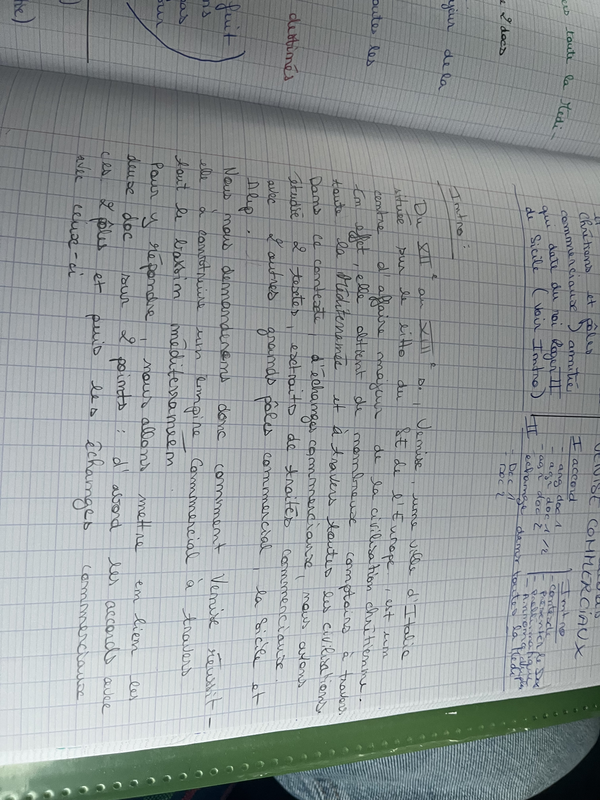 toute la Médi-
2 docs
majeur de la
toutes les
destinés
Chrétiens et pôles
commerciaux) amitié
que date du roi Roger II
de Sicile (voir Intro)
VENISE COMMER
CIAUX
I accord
- arg doc 1
- arg doc 2
II échange dans toutes la Médit
- Doc 1
- Doc 2
Intro
- contexte
- présenter le Doc
- problématique
- Annonce du plan
Intro :
Du XIIe au XIIIe s., Venise, une ville d'Italie
située sur le litto du St de l'Europe, est un
centre d'affaire majeur de la civilisation chrétienne.
En effet elle obtient de nombreux comptoirs à travers
toute la Méditerranée et à travers toutes les civilisations.
Dans ce contexte d'échanges commerciaux, nous avons
étudié 2 textes, extraits de traités commerciaux
avec 2 autres grands pôles commercial, la Sicile et
Alep.
Nous nous demanderons donc comment Venise réussit-
elle à construire un empire commercial à travers
tout le bassin méditerranéen
Pour y répondre, nous allons mettre en lien les
deux doc sur 2 points : d'abord les accords avec
ces 2 pôles et puis les échanges commerciaux
avec ceux-ci